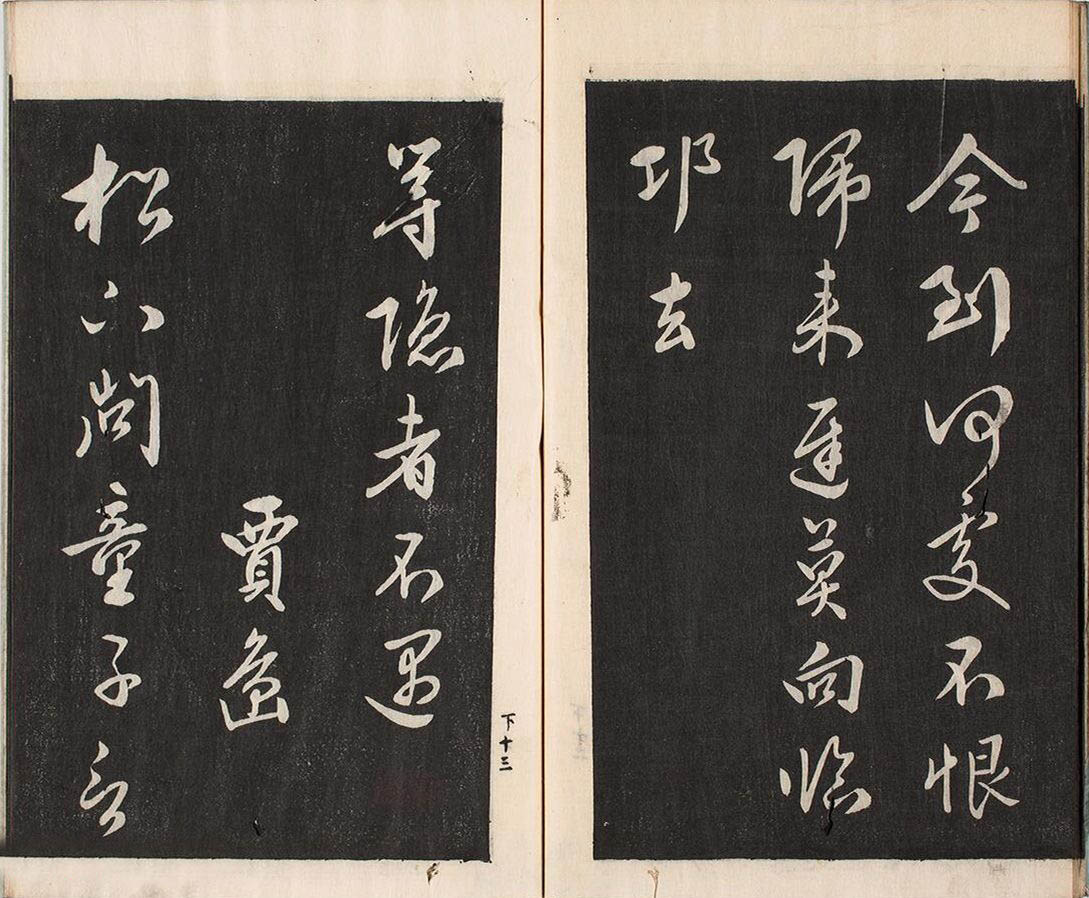 今到何處不恨
歸来遲莫向臨
邛去
尋隐者不遇
賈島
松下問童子言
下十三